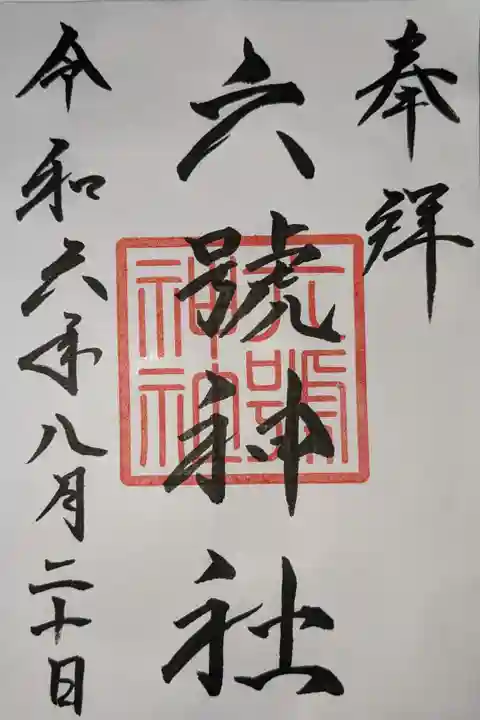 奉拝
六號神社
六號
神社
令和六年八月二十日